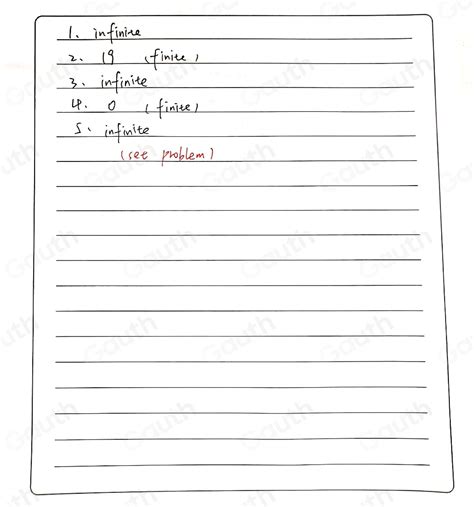 1. infinite
2. 19 (finite)
3. infinite
4. 0 (finite)
5. infinite
(set problem)